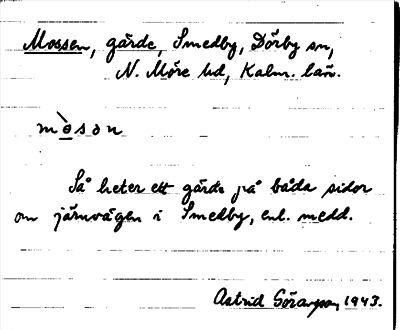 Mossen, gärde, Smedby, Dörby sn,
N. Möre hd, Kalm. län.
mòsən
Så heter ett gärde på båda sidor
om järnvägen i Smedby, enl. medd.
Astrid Göransson, 1943.